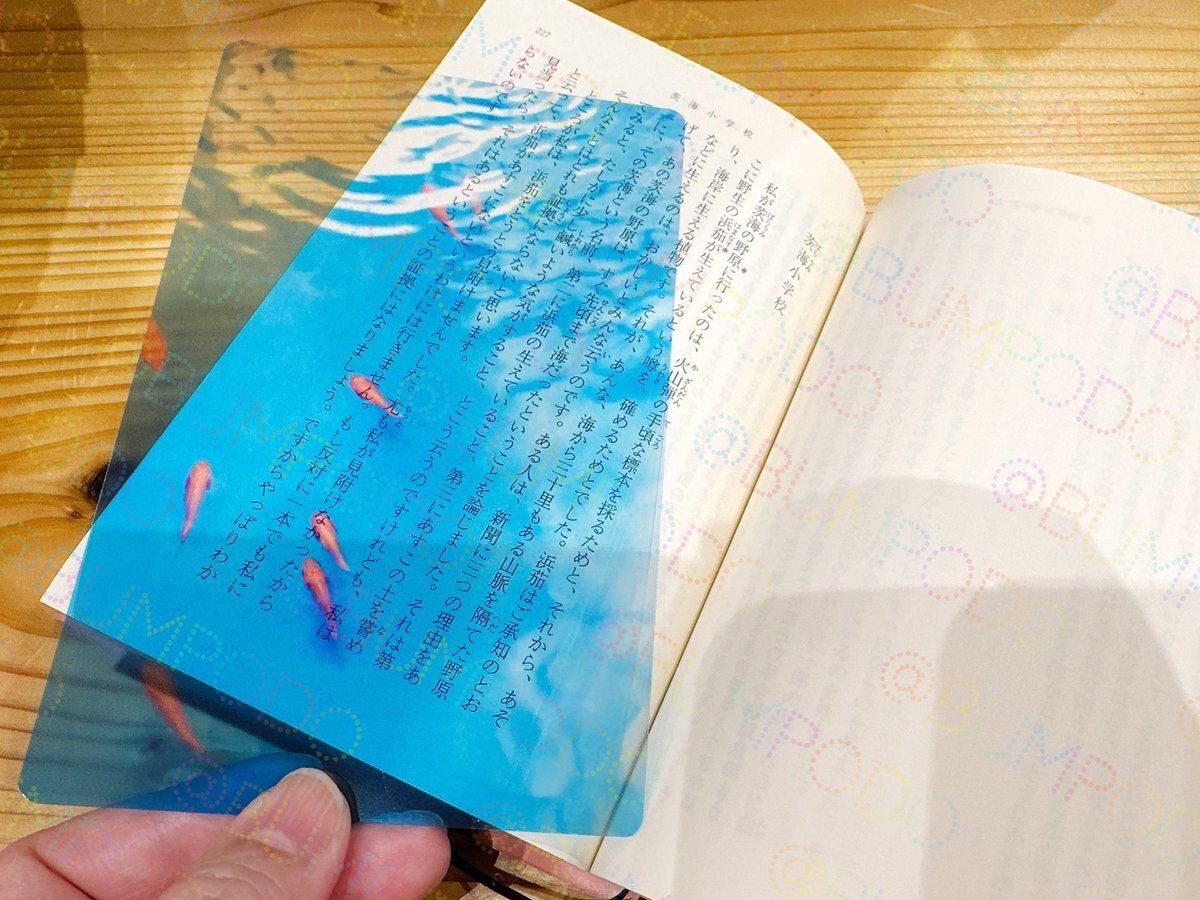 227
茨海小学校
茨海小学校
私が茨海の野原に行ったのは、火山弾の手頃な標本を採るためと、それから、あそ
こに野生の浜茄が生えているという噂を、確めるためとでした。浜茄はご承知のとお
り、海岸に生える植物です。それが、あんな、海から三十里もある山脈を隔てた野原
などに生えるのは、おかしいとみんな云うのです。ある人は、新聞に三つの理由をあ
げて、あの茨海の野原は、すぐ先頃まで海だったということを論じました。それは第
一に、その茨海という名前、第二に浜茄の生えていること、第三にあすこの土を嘗め
てみると、たしかに少し鹹いような気がすること、とこう云うのですけれども、私は
そんなことはどれも証拠にならないと思います。
ところが私は、浜茄をとうとう見附けませんでした。尤も私が見附けなかったから
と云って、浜茄があすこにないというわけには行きません。もし反対に一本でも私に
見当ったら、それはあるということの証拠にはなりましょう。ですからやっぱりわか
らないのです。
@BUMPODO